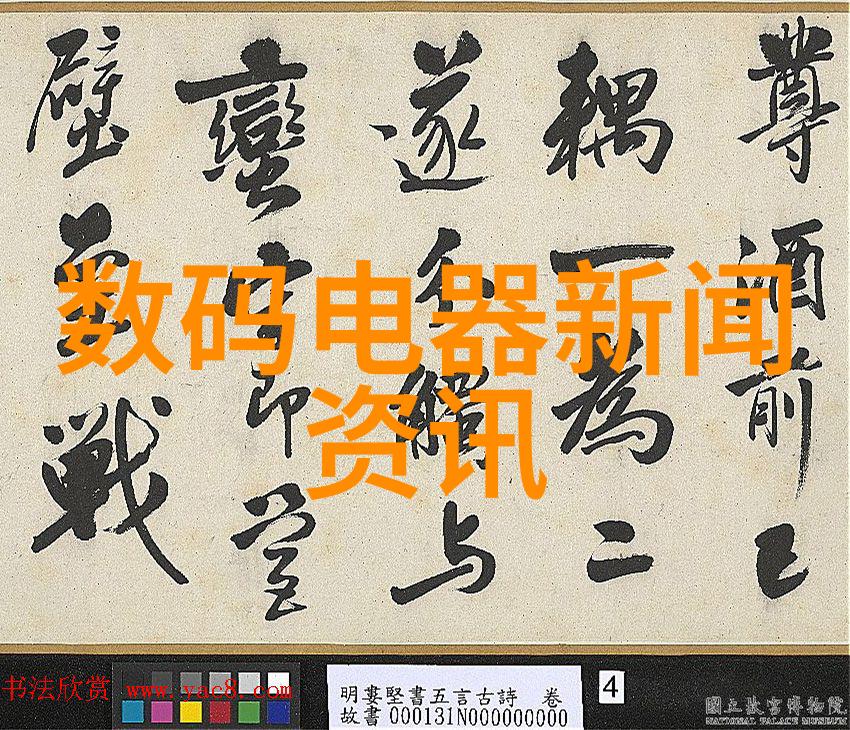 尊酒前已
耦一為二
遂觸与
蠻即營
壁戰
数码电器新闻
资讯
书法欣赏 www.yac8.com
明婁堅書五言古詩 卷
故書000131N000000000
4
國立故宮博物院
NATIONAL PALACE MUSEUM